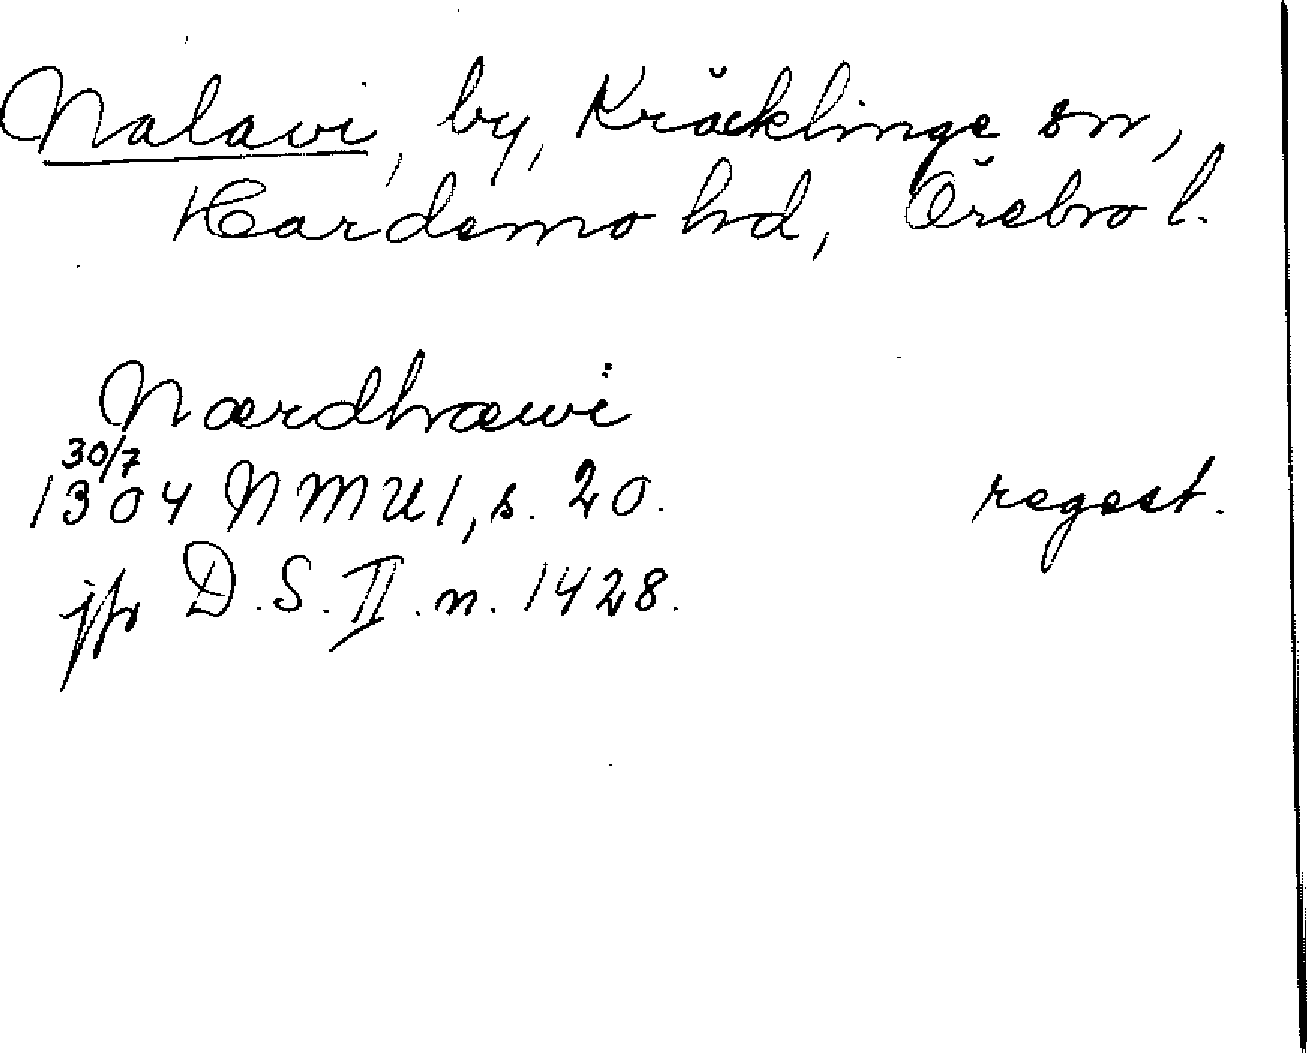 Nalavi, by, Kräcklinge sn,
Hardemo hd, Örebro l.
Nærdhæwi
30/7
1304 NMU 1, s. 20. regest.
jfr D.S. II. n. 1428.